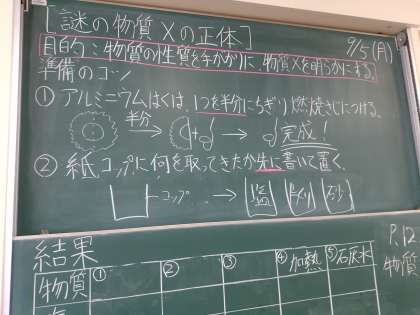 [謎の物質Xの正体]
9/5(月)
目的:物質の性質を手がかりに、物質Xを明らかにする。
準備のコツ
① アルミニウムはくは、1つを半分にちぎり燃焼さじにつける。
半分
完成!
② 紙コップに何を取ってきたか先に書いて置く。
コップ
塩
砂
結果
P.12
物質 ① ② ③ ④加熱 ⑤石灰水
物質